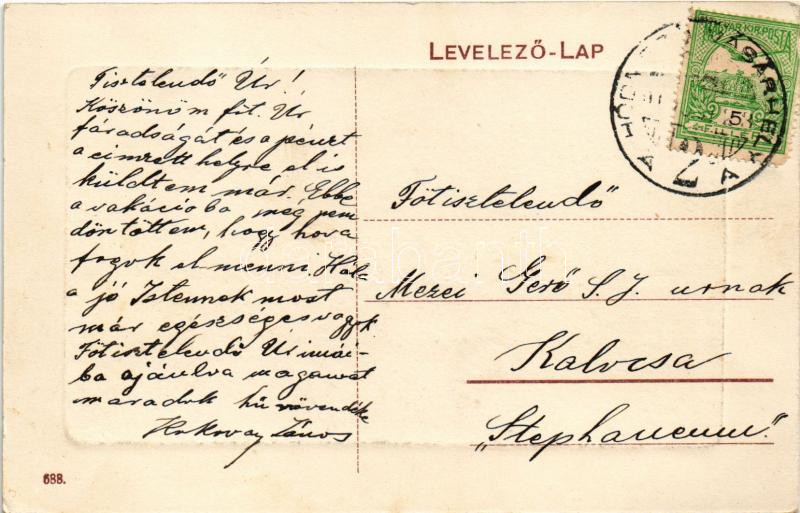 LEVELEZŐ-LAP
MAGYAR KIR. POSTA
VÁSÁRHELY
Tisztelendő Úr!
Köszönöm főt. Úr
fáradságát és a pénzt
a címzett helyre el is
küldtem már. Ebbe
a vakációba még nem
döntöttem, hogy hova
fogok el menni. Hála
a jó Istennek most
már egészséges vagyk.
Főtisztelendő Úr imái-
ba ajánlva magamat
maradok hű növendéke
János
Főtisztelendő
Mezei Gerő S. J. urnak
Kalocsa
„Stephaneum."
688.